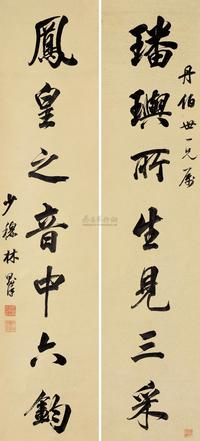 丹伯世一兄屬
璠璵所生見三采
鳳皇之音中六鈞
少穆林則徐